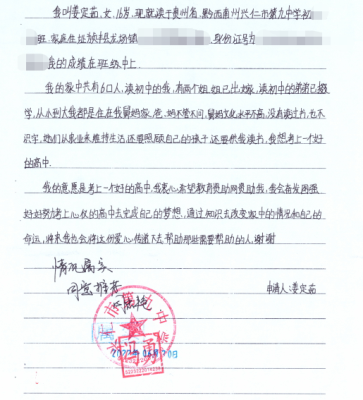 我叫娄定茹,女,16岁,现就读于贵州省,黔西南州兴仁市第九中学初
班,家庭住址 县龙场镇 身份证号为
我的成绩在班级中上
我的家中共有6口人,读初中的我,有两个姐姐已出嫁,读初中的弟弟已辍
学,从小到大我都是在在我舅妈家,爸、妈不管不问,舅妈文化水平不高,没有读过书,也不
识字,她们以农业来维持生活,还要照顾自己的孩子,还要供我读书,我想考上一个好
的高中.
我的意愿是考上一个好的高中,我衷心希望教育资助网资助我,我会奋发图强
好好努力考上心仪的高中去完成自己的梦想,通过知识去改变家中的情况和自己的
命运,将来我也会将这份爱心传递下去帮助那些需要帮助的人,谢谢
情况属实
同意推荐
申请人:娄定茹
冯勇